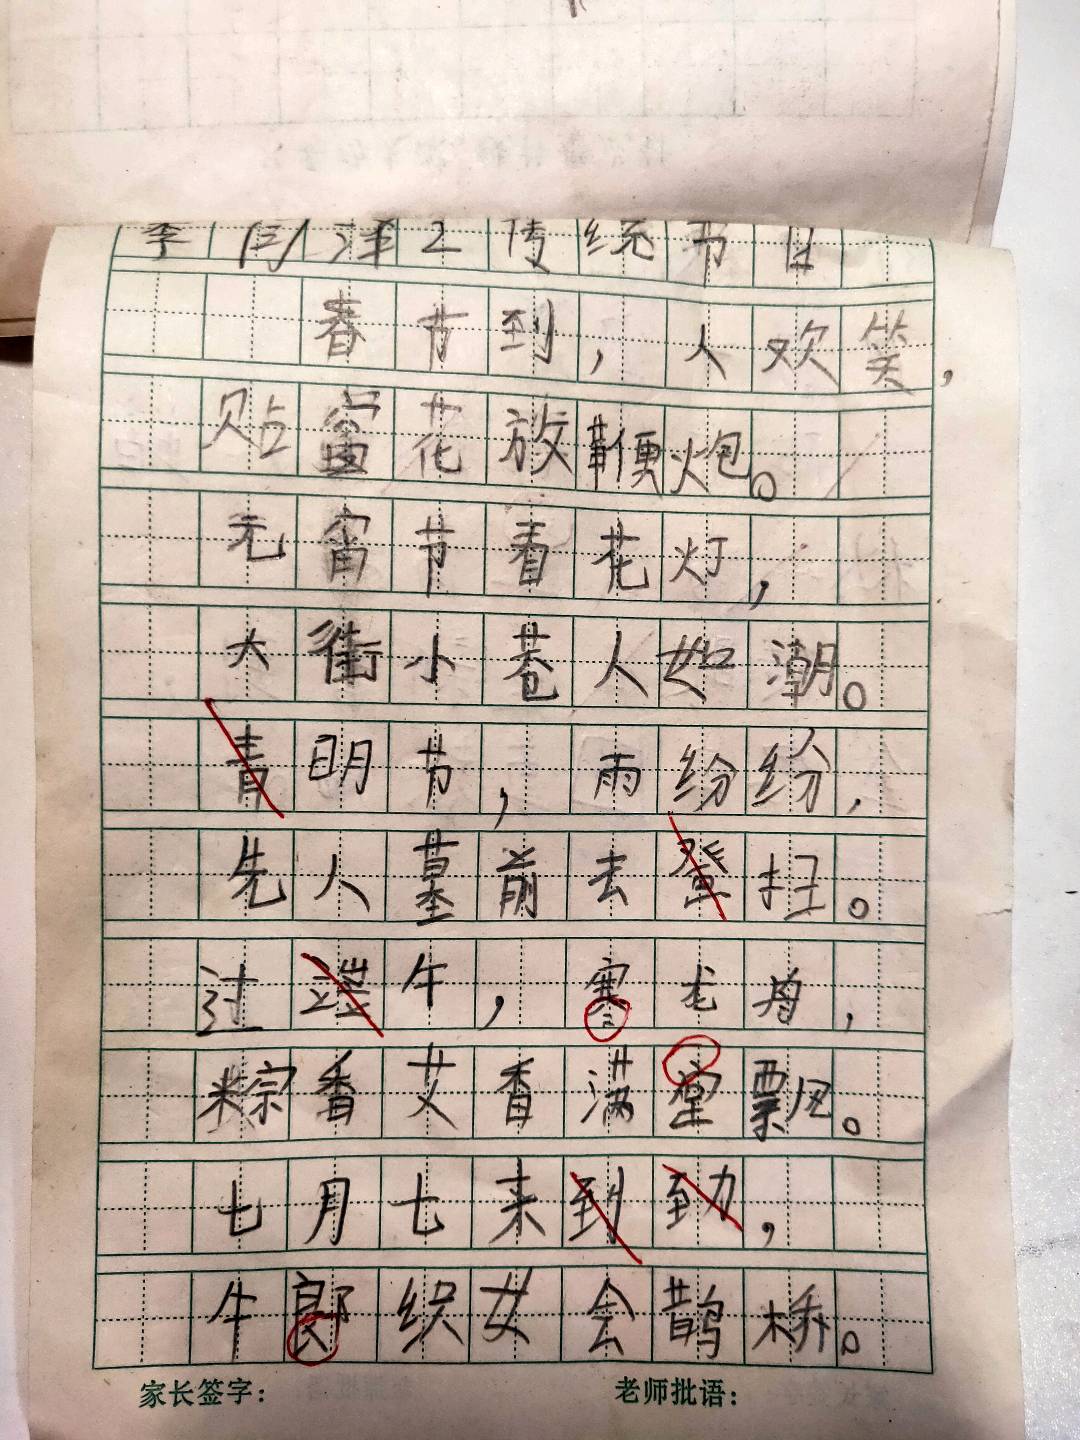 李 2传统节日
春节到，人欢笑，
贴窗花放鞭炮。
元宵节看花灯，
大街小巷人如潮。
青明节，雨纷纷，
先人墓前去 扫。
过端午，赛龙舟，
粽香艾香满堂飘。
七月七来到 ，
牛郎织女会鹊桥。
家长签字： 老师批语：